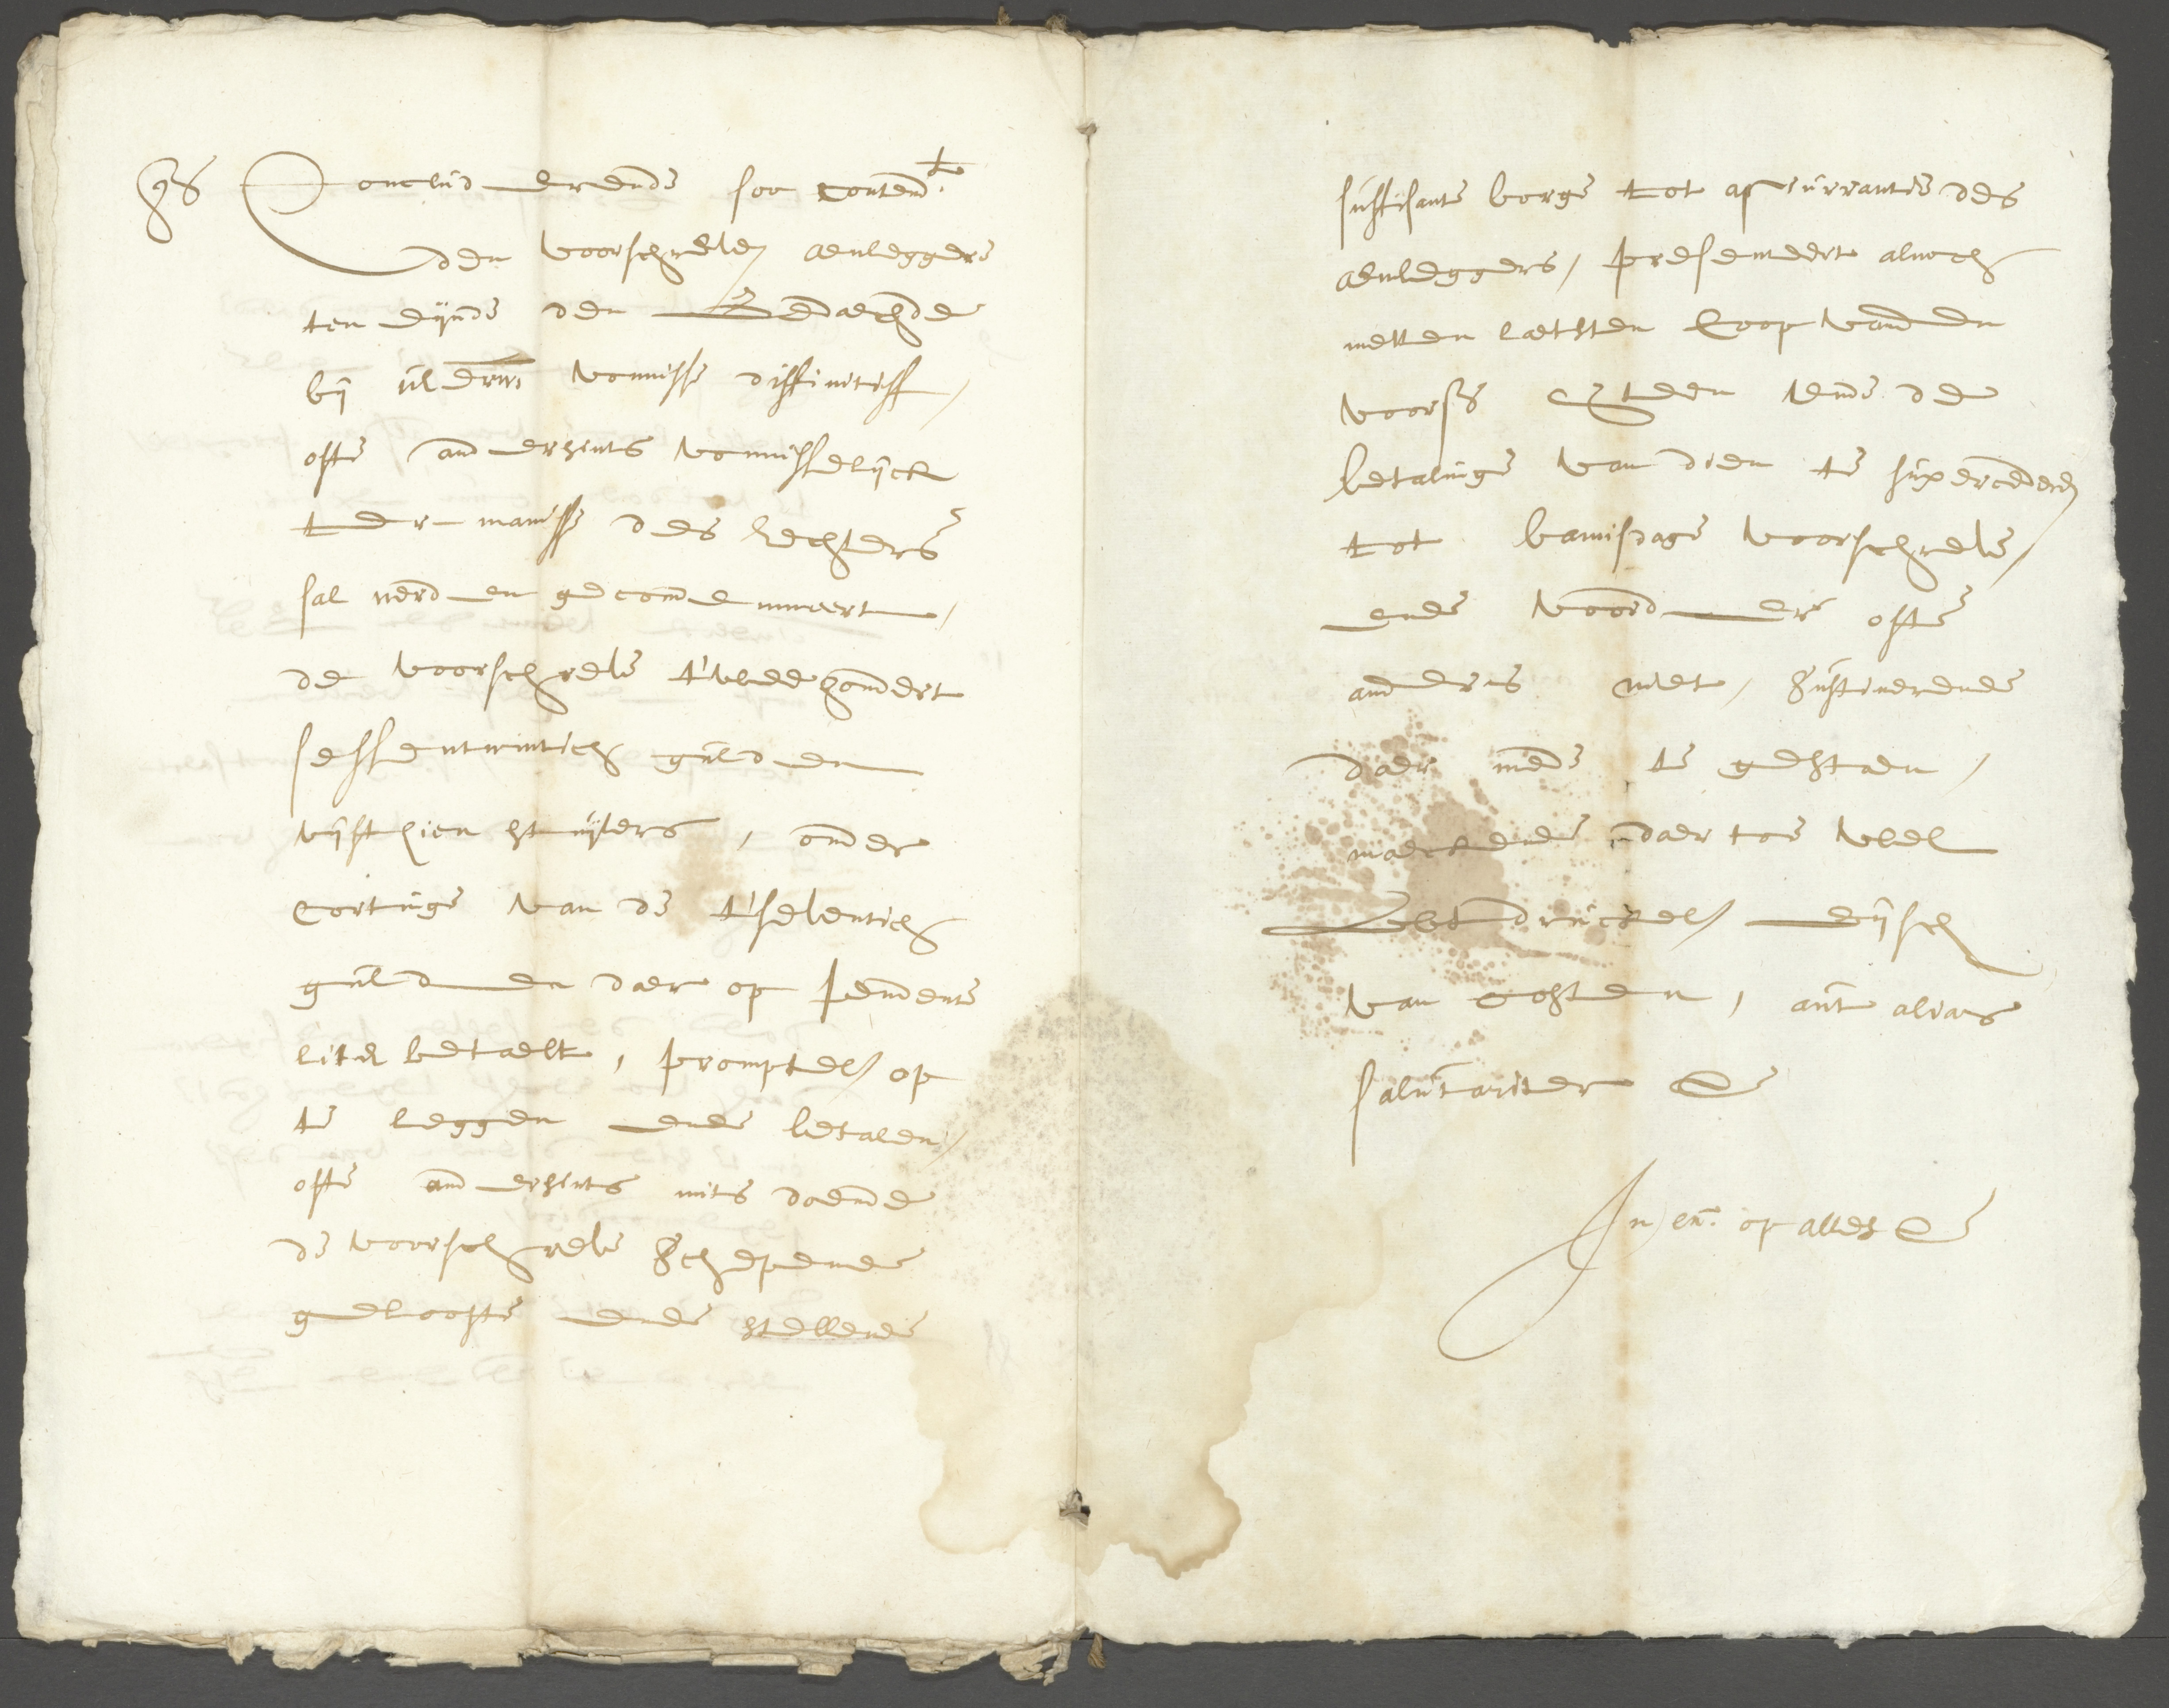 Concluderende soo contend.
den voorschreven aenleggere
ten eynde den Gedaechde
bij ulder vonnisse diffinitiff,
ofte andersints vonnisselijck
ter manisse des Rechters
sal werden gecondemneert,
de voorschreve t'weehondert
sessentwintich gulden
vijfthien stuijvers, onder
cortinge van de t'seventich
gulden daer op pendente
lite betaelt, promptel op
te leggen ende betalen,
ofte andersints mits doende
de voorschreve Schepene
geloofte ende stellende
suffisante borge tot asseurrantie des
aenleggers, presenteert alnoch
metten laetsten Coop vanden
voors. ende de
betalinge van dien te supercederen
tot bamisdage voorschreve,
ende voorder ofte
anders niet, Sustinerende
daer mede te gestaen,
maeckende daer toe wel
uutdruckel eijsch
van costen, aut alias
salutariter &c
In en. op alles &c